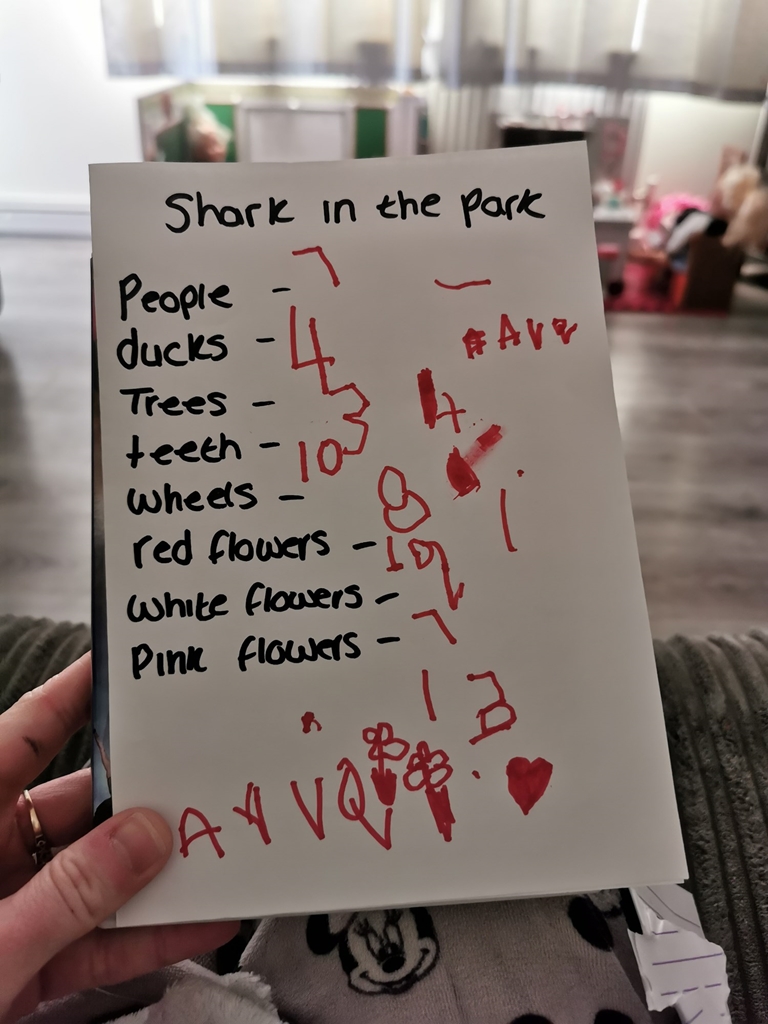 Shark in the park
People - 7
ducks - 4
Trees - 3
teeth - 10
wheels - 8
red flowers - 10
white flowers - 7
Pink flowers -
4
1
1 3
A V V Q V